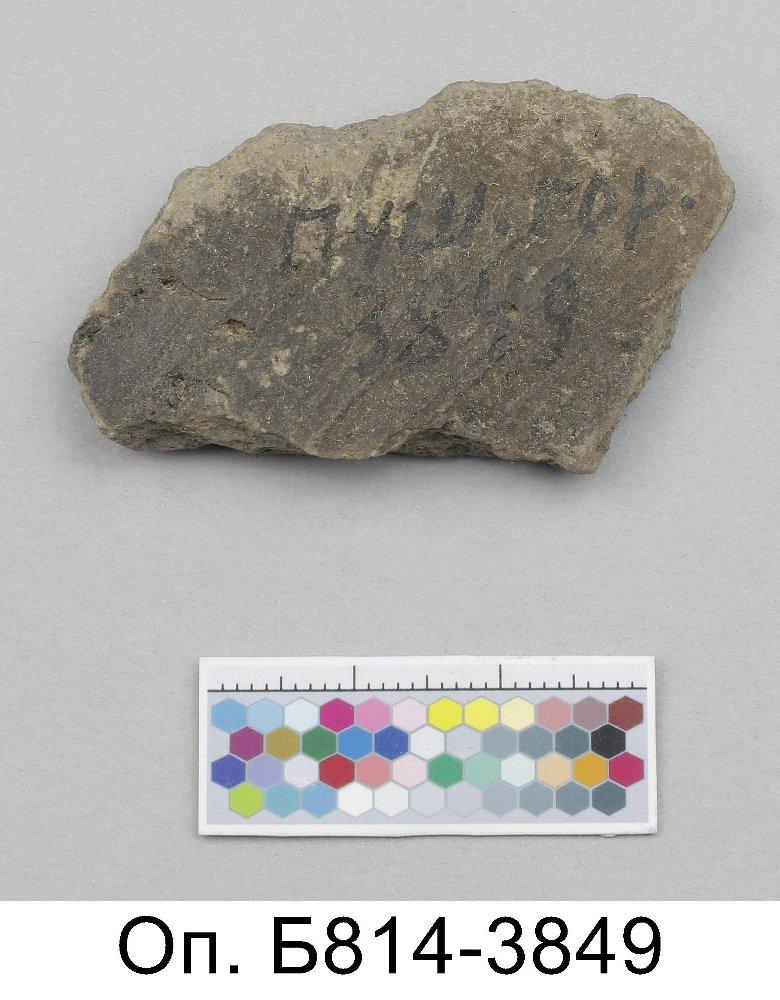 пуш. гор.
3849
Оп. Б814-3849